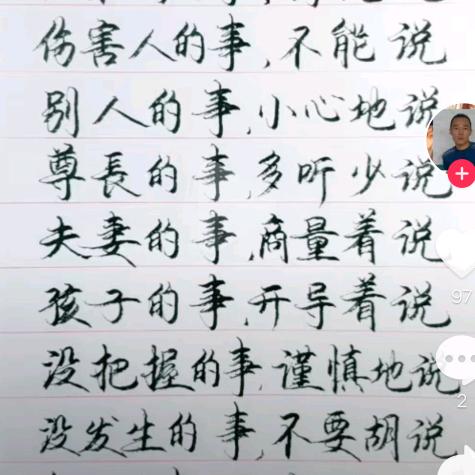 伤害人的事,不能说
别人的事,小心地说
尊長的事,多听少说
夫妻的事,商量着说
孩子的事,开导着说
97
没把握的事,谨慎地说
2
没发生的事,不要胡说